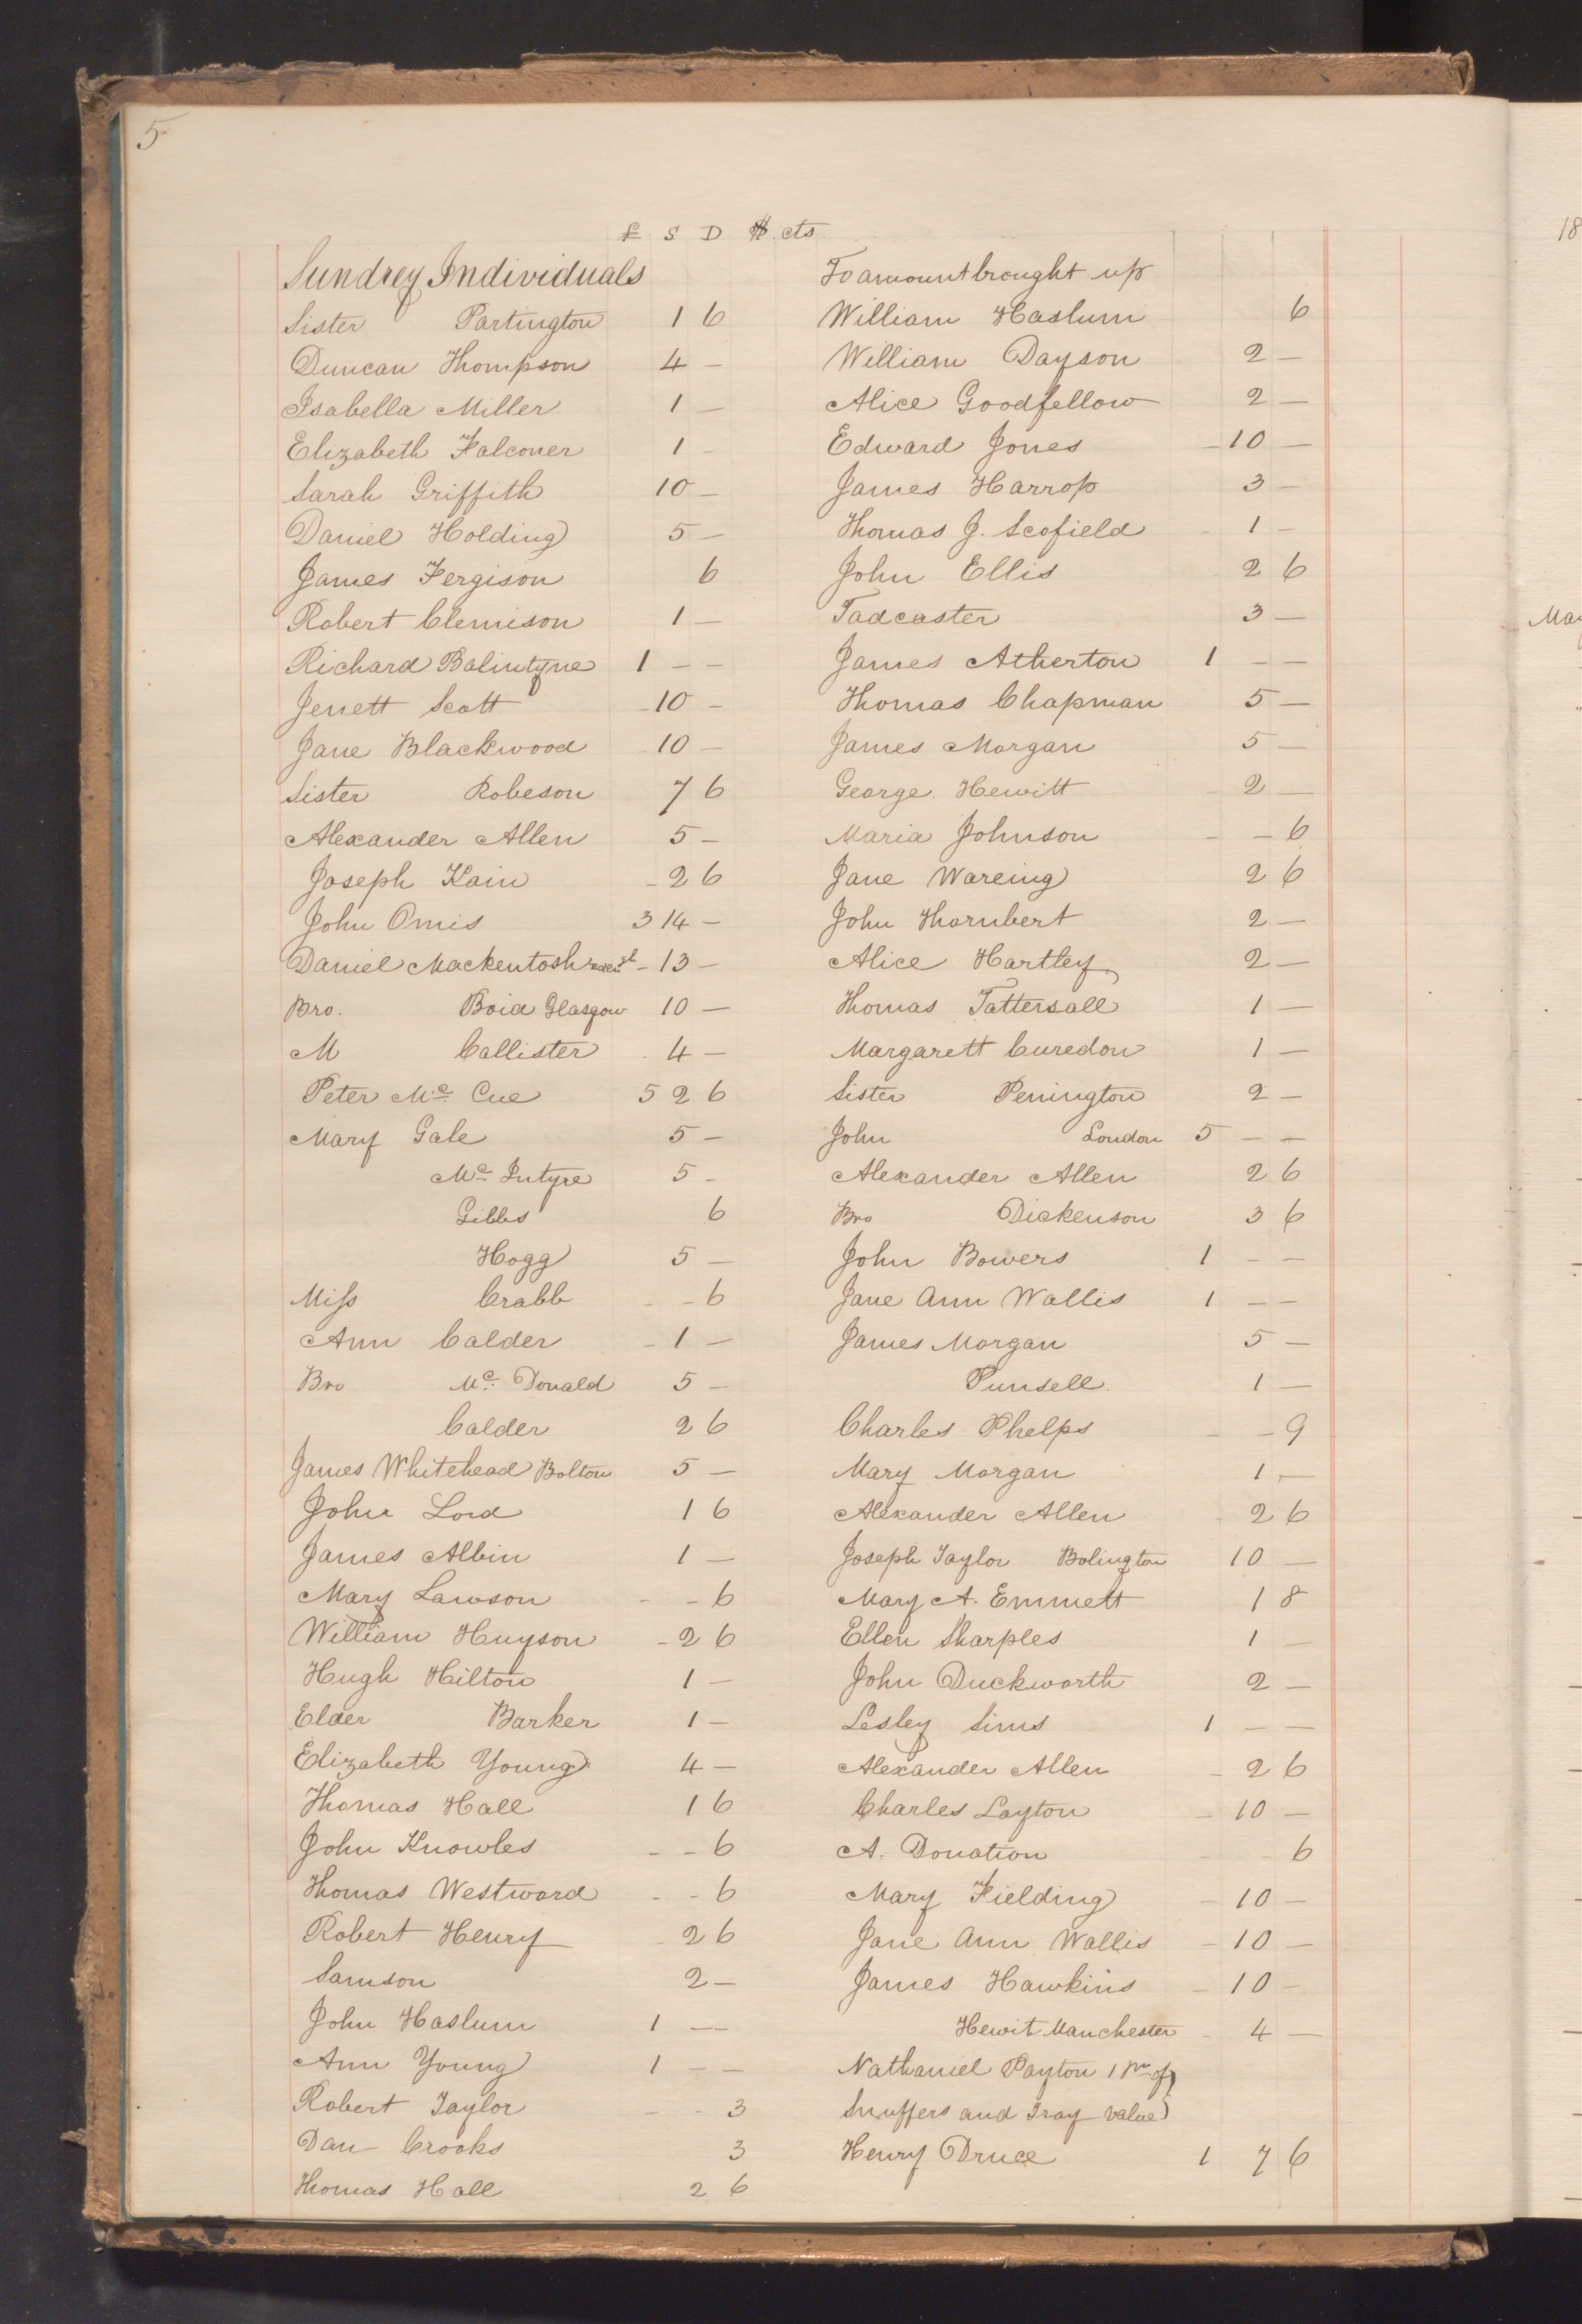 5
£ S D $ cts
Sundrey Individuals
Sister Partington 1 6
Duncan Thompson 4 –
Isabella Miller 1 –
Elizabeth Falconer 1 –
Sarah Griffith 10 –
Daniel Holding 5 –
James Fergison 6
Robert Clemison 1 –
Richard Balintyne 1 – –
Jenett Scott 10 –
Jane Blackwood 10 –
Sister Robeson 7 6
Alexander Allen 5 –
Joseph Kain – 2 6
John Omis 3 14 –
Daniel Mackentosh – 13 –
Bro. Boid Glasgow 10 –
M Callister 4 –
Peter Mc Cue 5 2 6
Mary Gale 5 –
Mc Intyre 5 –
Gibbs 6
Hogg 5 –
Miss Crabb – – 6
Ann Calder – 1 –
Bro Mc Donald 5 –
Calder 2 6
James Whitehead Bolton 5 –
John Lord 1 6
James Albin 1 –
Mary Lawson – – 6
William Huyson – 2 6
Hugh Hilton 1 –
Elder Barker 1 –
Elizabeth Young 4 –
Thomas Hall 1 6
John Knowles – – 6
Thomas Westward – – 6
Robert Henry 2 6
Samson 2 –
John Haslum 1 –
Ann Young 1 – –
Robert Taylor – – 3
Dan Crooks 3
Thomas Hall 2 6
To amount brought up
William Haslum 6
William Dayson 2 –
Alice Goodfellow 2 –
Edward Jones – 10 –
James Harrop 3 –
Thomas J. Scofield – 1 –
John Ellis 2 6
Tadcaster 3 –
James Atherton 1 – –
Thomas Chapman 5 –
James Morgan 5 –
George Hewitt 2 –
Maria Johnson – – 6
Jane Wareing 2 6
John Thornbert 2 –
Alice Hartley 2 –
Thomas Tattersall 1 –
Margarett Curedon 1 –
Sister Penington 2 –
John London 5 – –
Alexander Allen 2 6
Bro Dickenson 3 6
John Bowers 1 – –
Jane Ann Wallis 1 – –
James Morgan 5 –
Punsell 1 –
Charles Phelps – – 9
Mary Morgan 1 –
Alexander Allen 2 6
Joseph Taylor Bolington 10 –
Mary A. Emmett 1 8
Ellen Sharples 1 –
John Duckworth 2 –
Lesley Sims 1 – –
Alexander Allen – 2 6
Charles Layton – 10 –
A. Donation – – 6
Mary Fielding – 10 –
Jane Ann Wallis – 10 –
James Hawkins – 10 –
Hewit Manchester – 4 –
Nathaniel Payton 1 pr of
Snuffers and Tray value
Henry Druce 1 7 6
18
May